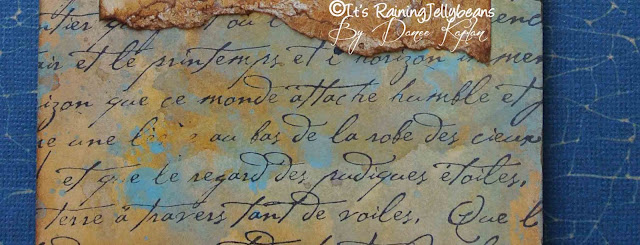 ©It's RainingJellybeans
By Danee Kaplan
air et le printemps et l'horizon immen
izon que ce monde attache humble et
une au bas de la robe des cieux
et que le regard des pudiques étoiles,
terre à travers tant de voiles. Que l